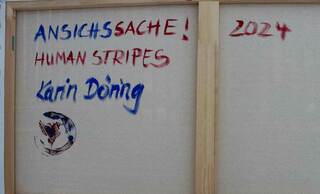 ANSICHSSACHE! 2024
HUMAN STRIPES
Karin Döring